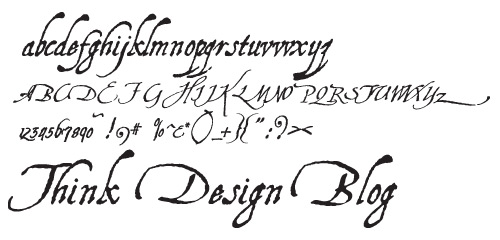 abcdefghijklmnopqrstuvwxyz
ABCDEFGHIJKLMNOPQRSTUVWXYZ
1234567890~!@# %^&*()_+{}":?><
Think Design Blog